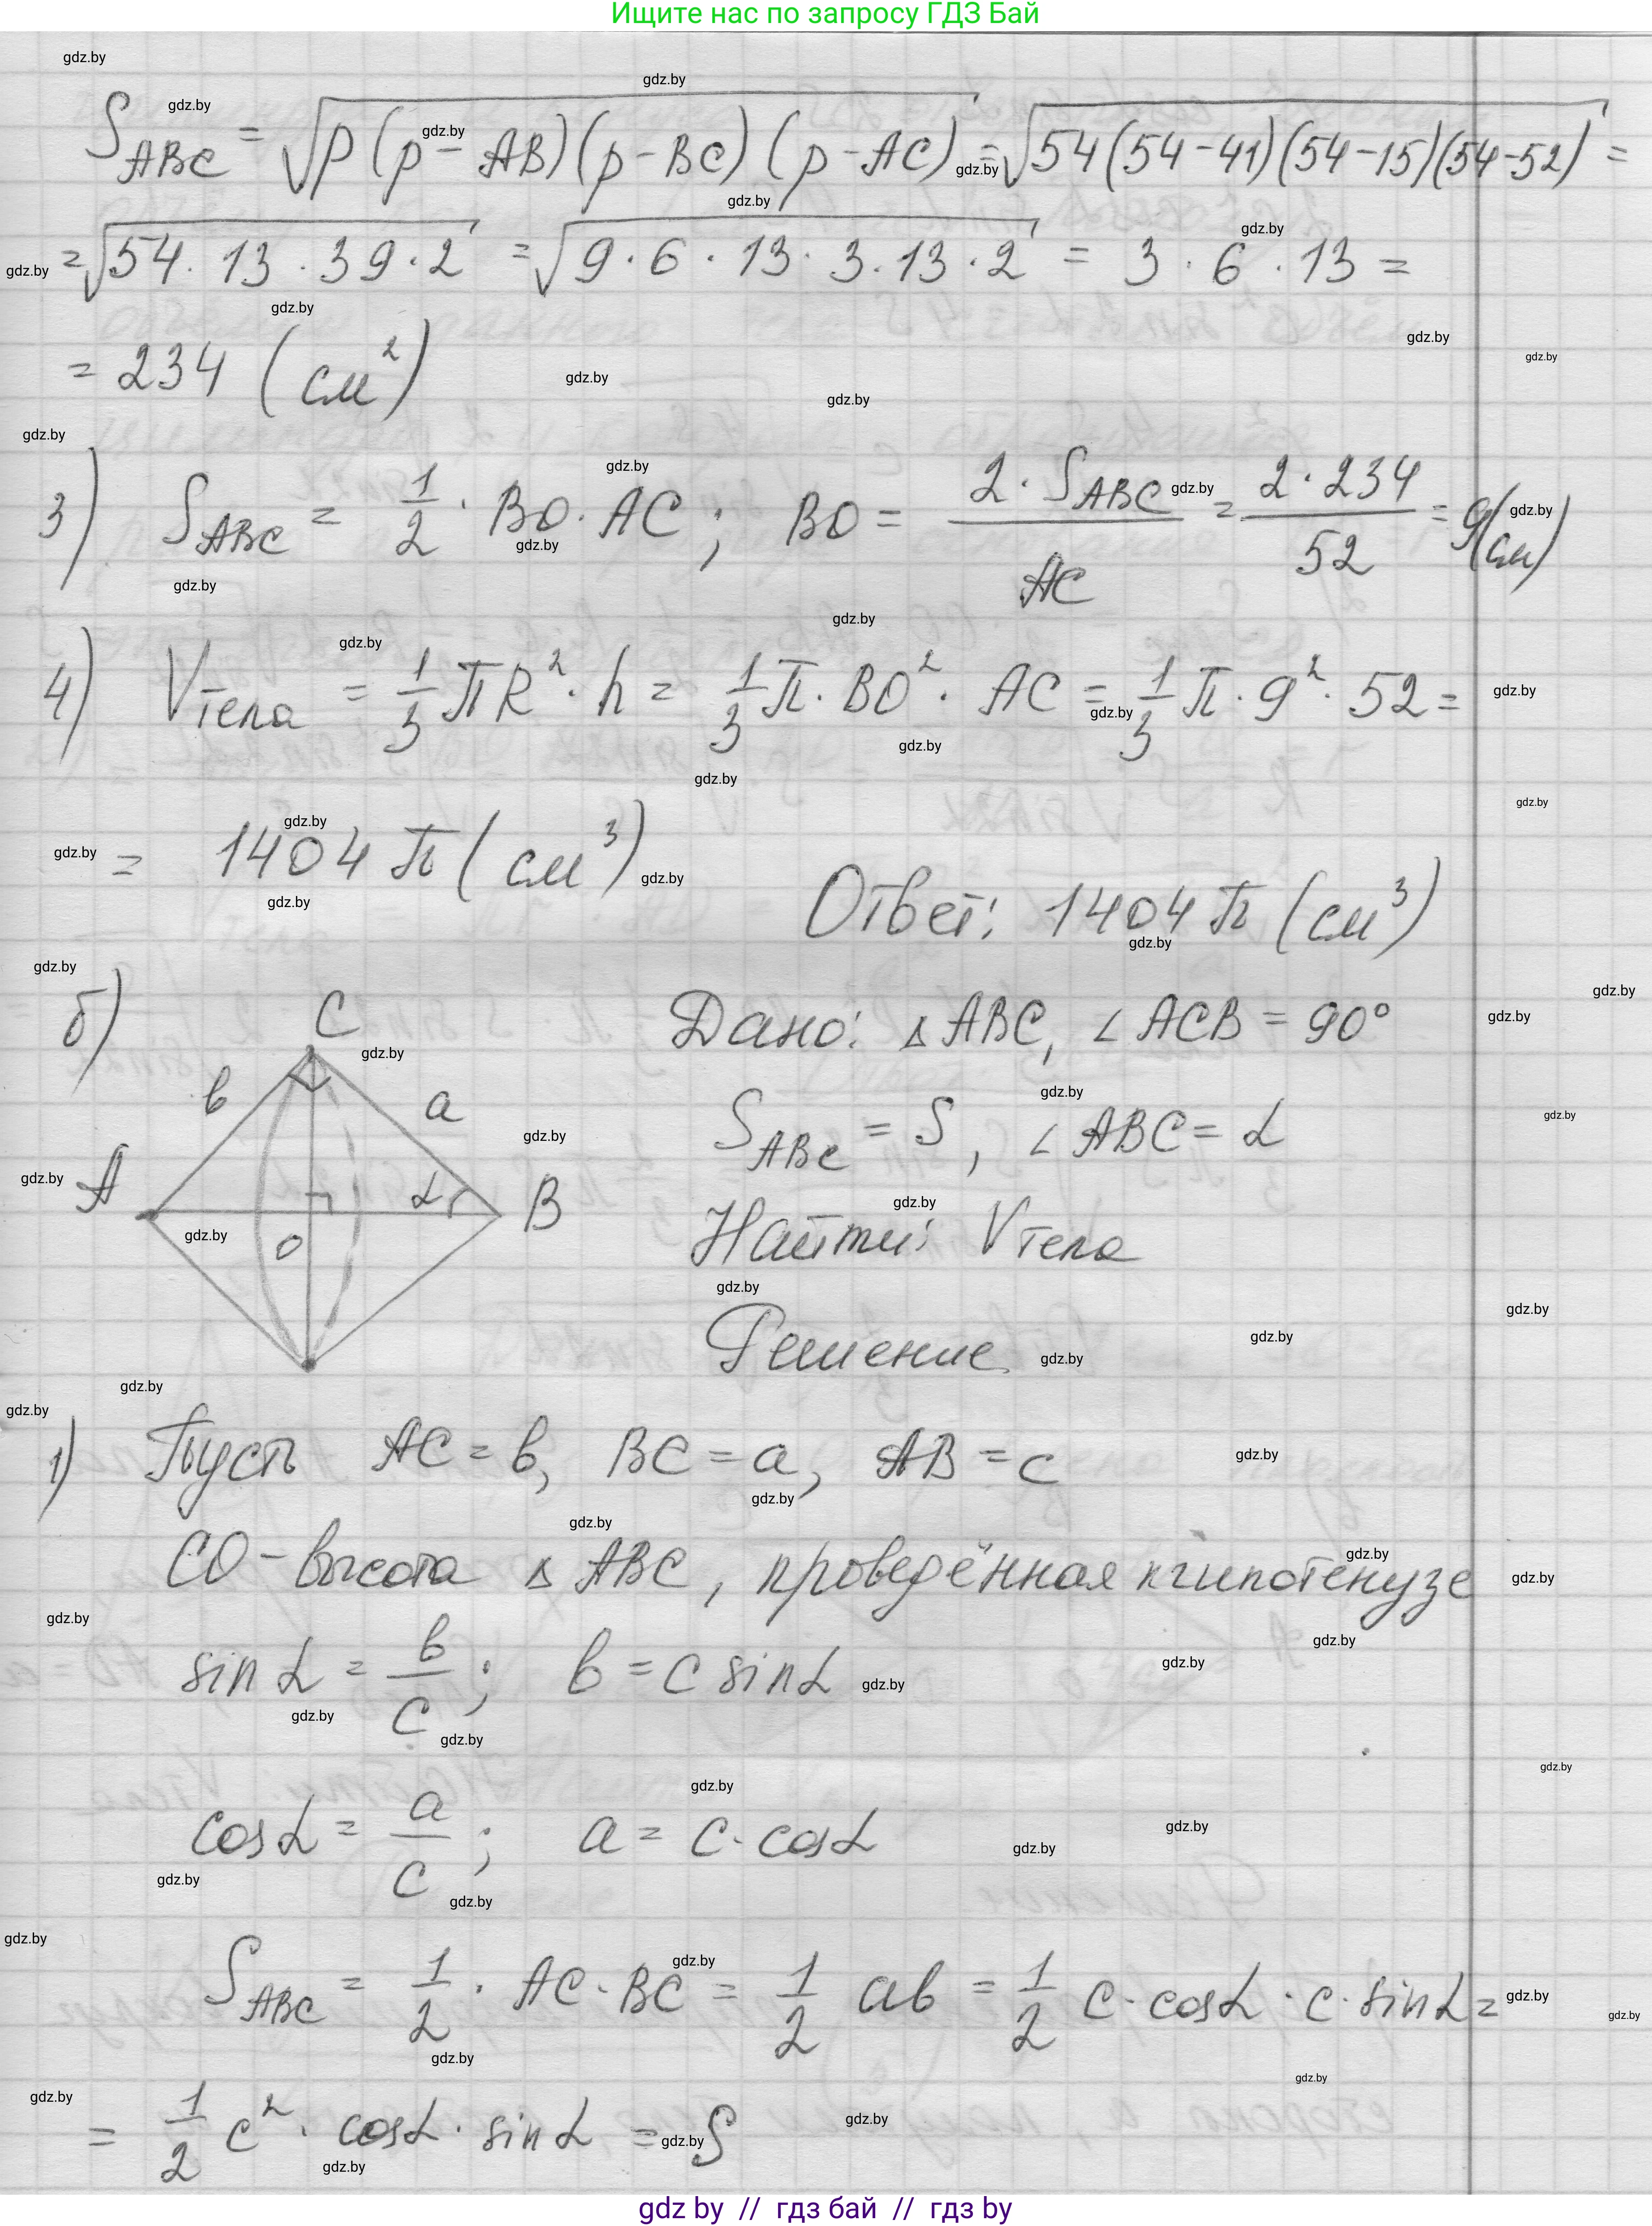 Ищите нас по запросу ГДЗ Бай
S_ABC = √p(p - AB)(p - BC)(p - AC) = √54(54-41)(54-15)(54-52) =
= √54 · 13 · 39 · 2 = √9 · 6 · 13 · 3 · 13 · 2 = 3 · 6 · 13 =
= 234 (см²)
3) S_ABC = 1/2 · BO · AC ; BO = 2 · S_ABC / AC = 2 · 234 / 52 = 9(см)
4) V_тела = 1/3 πR² · h = 1/3 π · BO² · AC = 1/3 π · 9² · 52 =
= 1404 π (см³)
Ответ: 1404 π (см³)
б)
C
b
a
A
α
B
O
Дано: △ABC, ∠ACB = 90°
S_ABC = S, ∠ABC = α
Найти: V_тела
Решение
1) Пусть AC = b, BC = a, AB = c
CO - высота △ABC, проведённая к гипотенузе
sin α = b/c ; b = c sin α
cos α = a/c ; a = c · cos α
S_ABC = 1/2 · AC · BC = 1/2 ab = 1/2 c · cos α · c · sin α =
= 1/2 c² · cos α · sin α = S
gdz by // гдз бай // гдз by